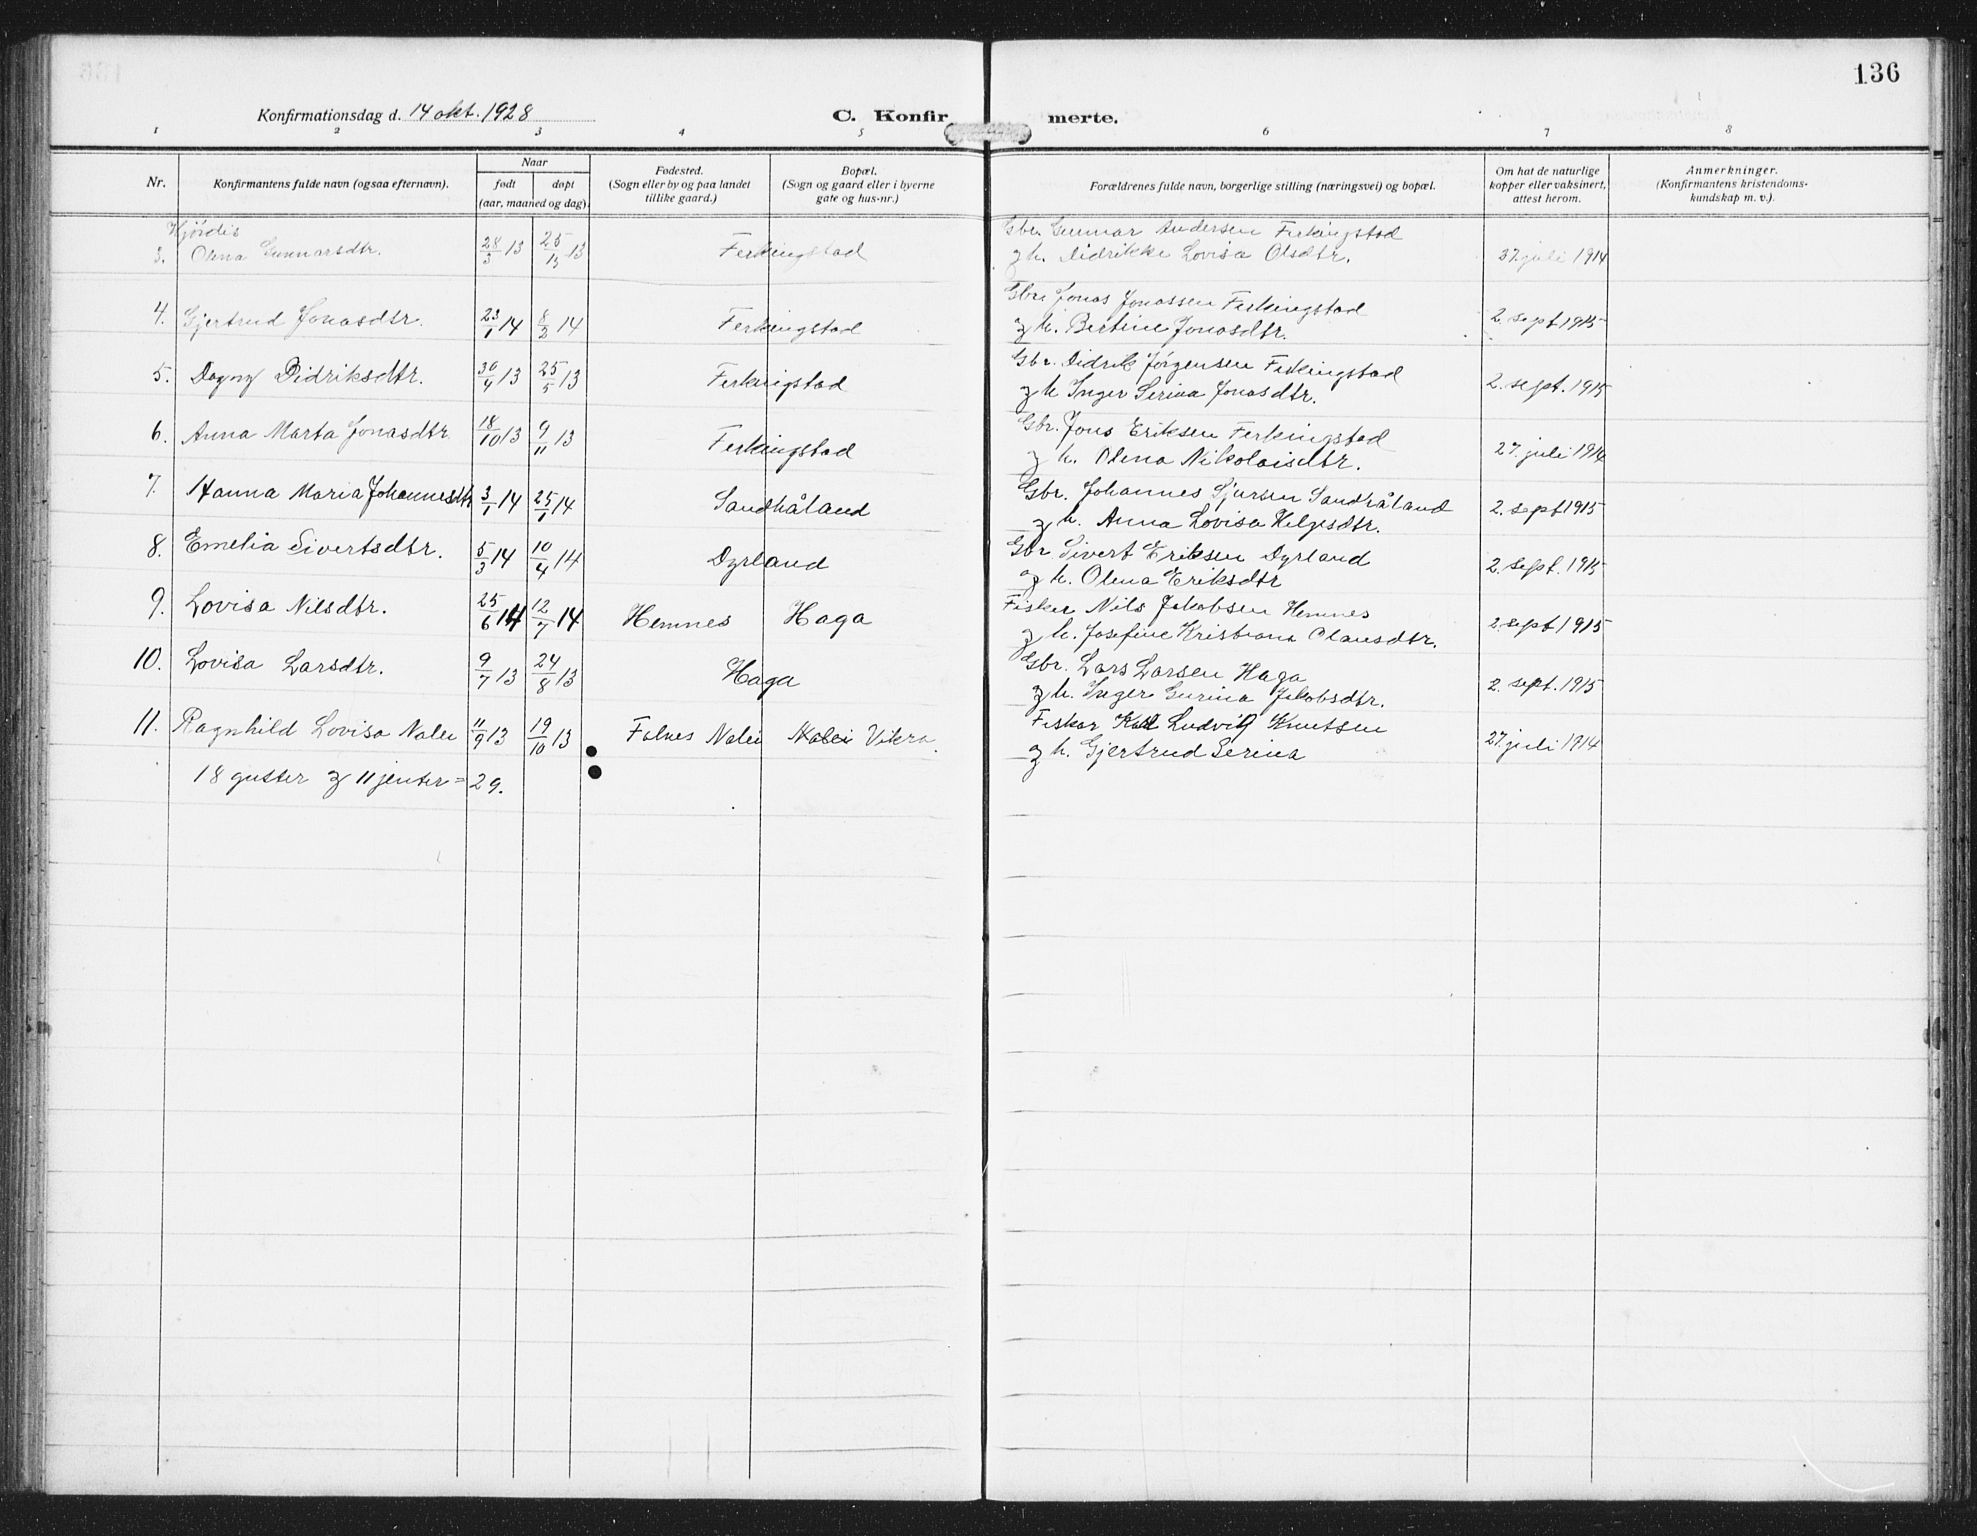 136
Konfirmationsdag d. 14 okt. 1928 C. Konfir merte.
1 2 3 4 5 6 7 8
Nr. Konfirmantens fulde navn (ogsaa efternavn). Naar født døpt (aar, maaned og dag). Fødested. (Sogn eller by og paa landet tillike gaard.) Bopæl. (Sogn og gaard eller i byerne gate og hus-nr.) Forældrenes fulde navn, borgerlige stilling (næringsvei) og bopæl. Om hat de naturlige kopper eller vaksinert, attest herom. Anmerkninger. (Konfirmantens kristendoms- kundskap m. v.).
Hjördis Gbr. Gunnar Andersen Ferkingstad
3. Olena Gunnarsdtr. 28/3 13 25/ 13 Ferkingstad og h. Didrikke Lovisa Olsdtr. 27. juli 1914
Gbr. Jonas Jonassen Ferkingstad
4. Gjertrud Jonasdtr. 23/1 14 8/2 14 Ferkingstad og h. Bertine Jonasdtr. 2. sept 1915
Gbr. Didrik Jørgensen Ferkingstad
5. Dagny Didriksdtr. 30/4 13 25/5 13 Ferkingstad og h Inger Serina Jonasdtr. 2. sept. 1915
Gbr. Jons Eriksen Ferkingstad
6. Anna Marta Jonasdtr. 18/10 13 9/11 13 Ferkingstad og h. Olena Nikolaisdtr. 27. juli 1914
Gbr. Johannes Sjursen Sandhåland
7. Hanna Maria Johannesdtr 3/1 14 25/1 14 Sandhåland og h. Anna Lovisa Helgesdtr. 2. sept 1915
Gbr Sivert Eriksen Dyrland
8. Emelia Sivertsdtr. 5/3 14 10/4 14 Dyrland og h. Olena Eriksdtr 2. sept. 1915
Fisker Nils Jakobsen Hemnes
9. Lovisa Nilsdtr. 25/6 14 12/7 14 Hemnes Haga og h. Josefine Kristiana Olausdtr. 2. sept 1915
Gbr. Lars Larsen Haga
10. Lovisa Larsdtr. 9/7 13 24/8 13 Haga og h. Inger Gurina Jakobsdtr. 2. sept. 1915
Fisker Karl Ludvig Knutsen
11. Ragnhild Lovisa Nalei 11/9 13 19/10 13 Falnes Nalei Nalei Vikra. og h. Gjertrud Serina 27. juli 1914
18 gutter og 11 jenter = 29.